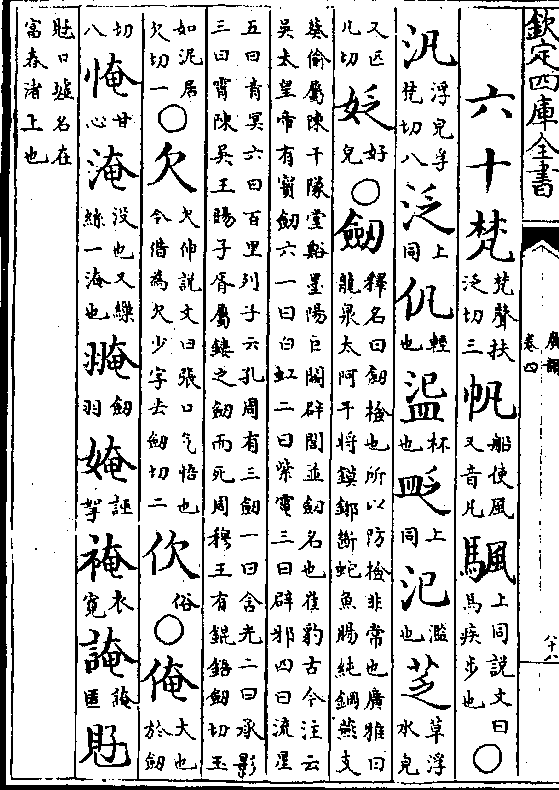 欽定四庫全書
廣韻
卷四
六十梵 梵聲扶泛切三 帆 船使風又音凡 颿 上同說文曰馬疾步也 ○
汎 浮皃孚梵切八 泛 上同 㐸 輕也 盕 杯也 上同 氾 濫也 芝 草浮水皃
又匹凡切 姂 好皃 ○ 劒 釋名曰劒檢也所以防檢非常也廣雅曰龍泉太阿干將鏌鋣斷蛇魚腸純鋼燕支
蔡倫屬陳干隊堂谿墨陽巨闕辟閭並劒名也崔豹古今注云吳太皇帝有寶劒六一曰白虹二曰紫電三曰辟邪四曰流星
五曰青冥六曰百里列子云孔周有三劒一曰含光二曰承影三曰霄陳吳王賜子胥屬鏤之劒而死周穆王有錕鋙劒切玉
如泥居欠切一 ○ 欠 欠伸說文曰張口气悟也今借為欠少字去劒切二 俗 ○ 俺 大也於劒
切八 㤿 甘心 淹 没也又繰絲一淹也 劒羽 媕 誣挐 裺 衣寬 匿
口墟名在富春渚上也